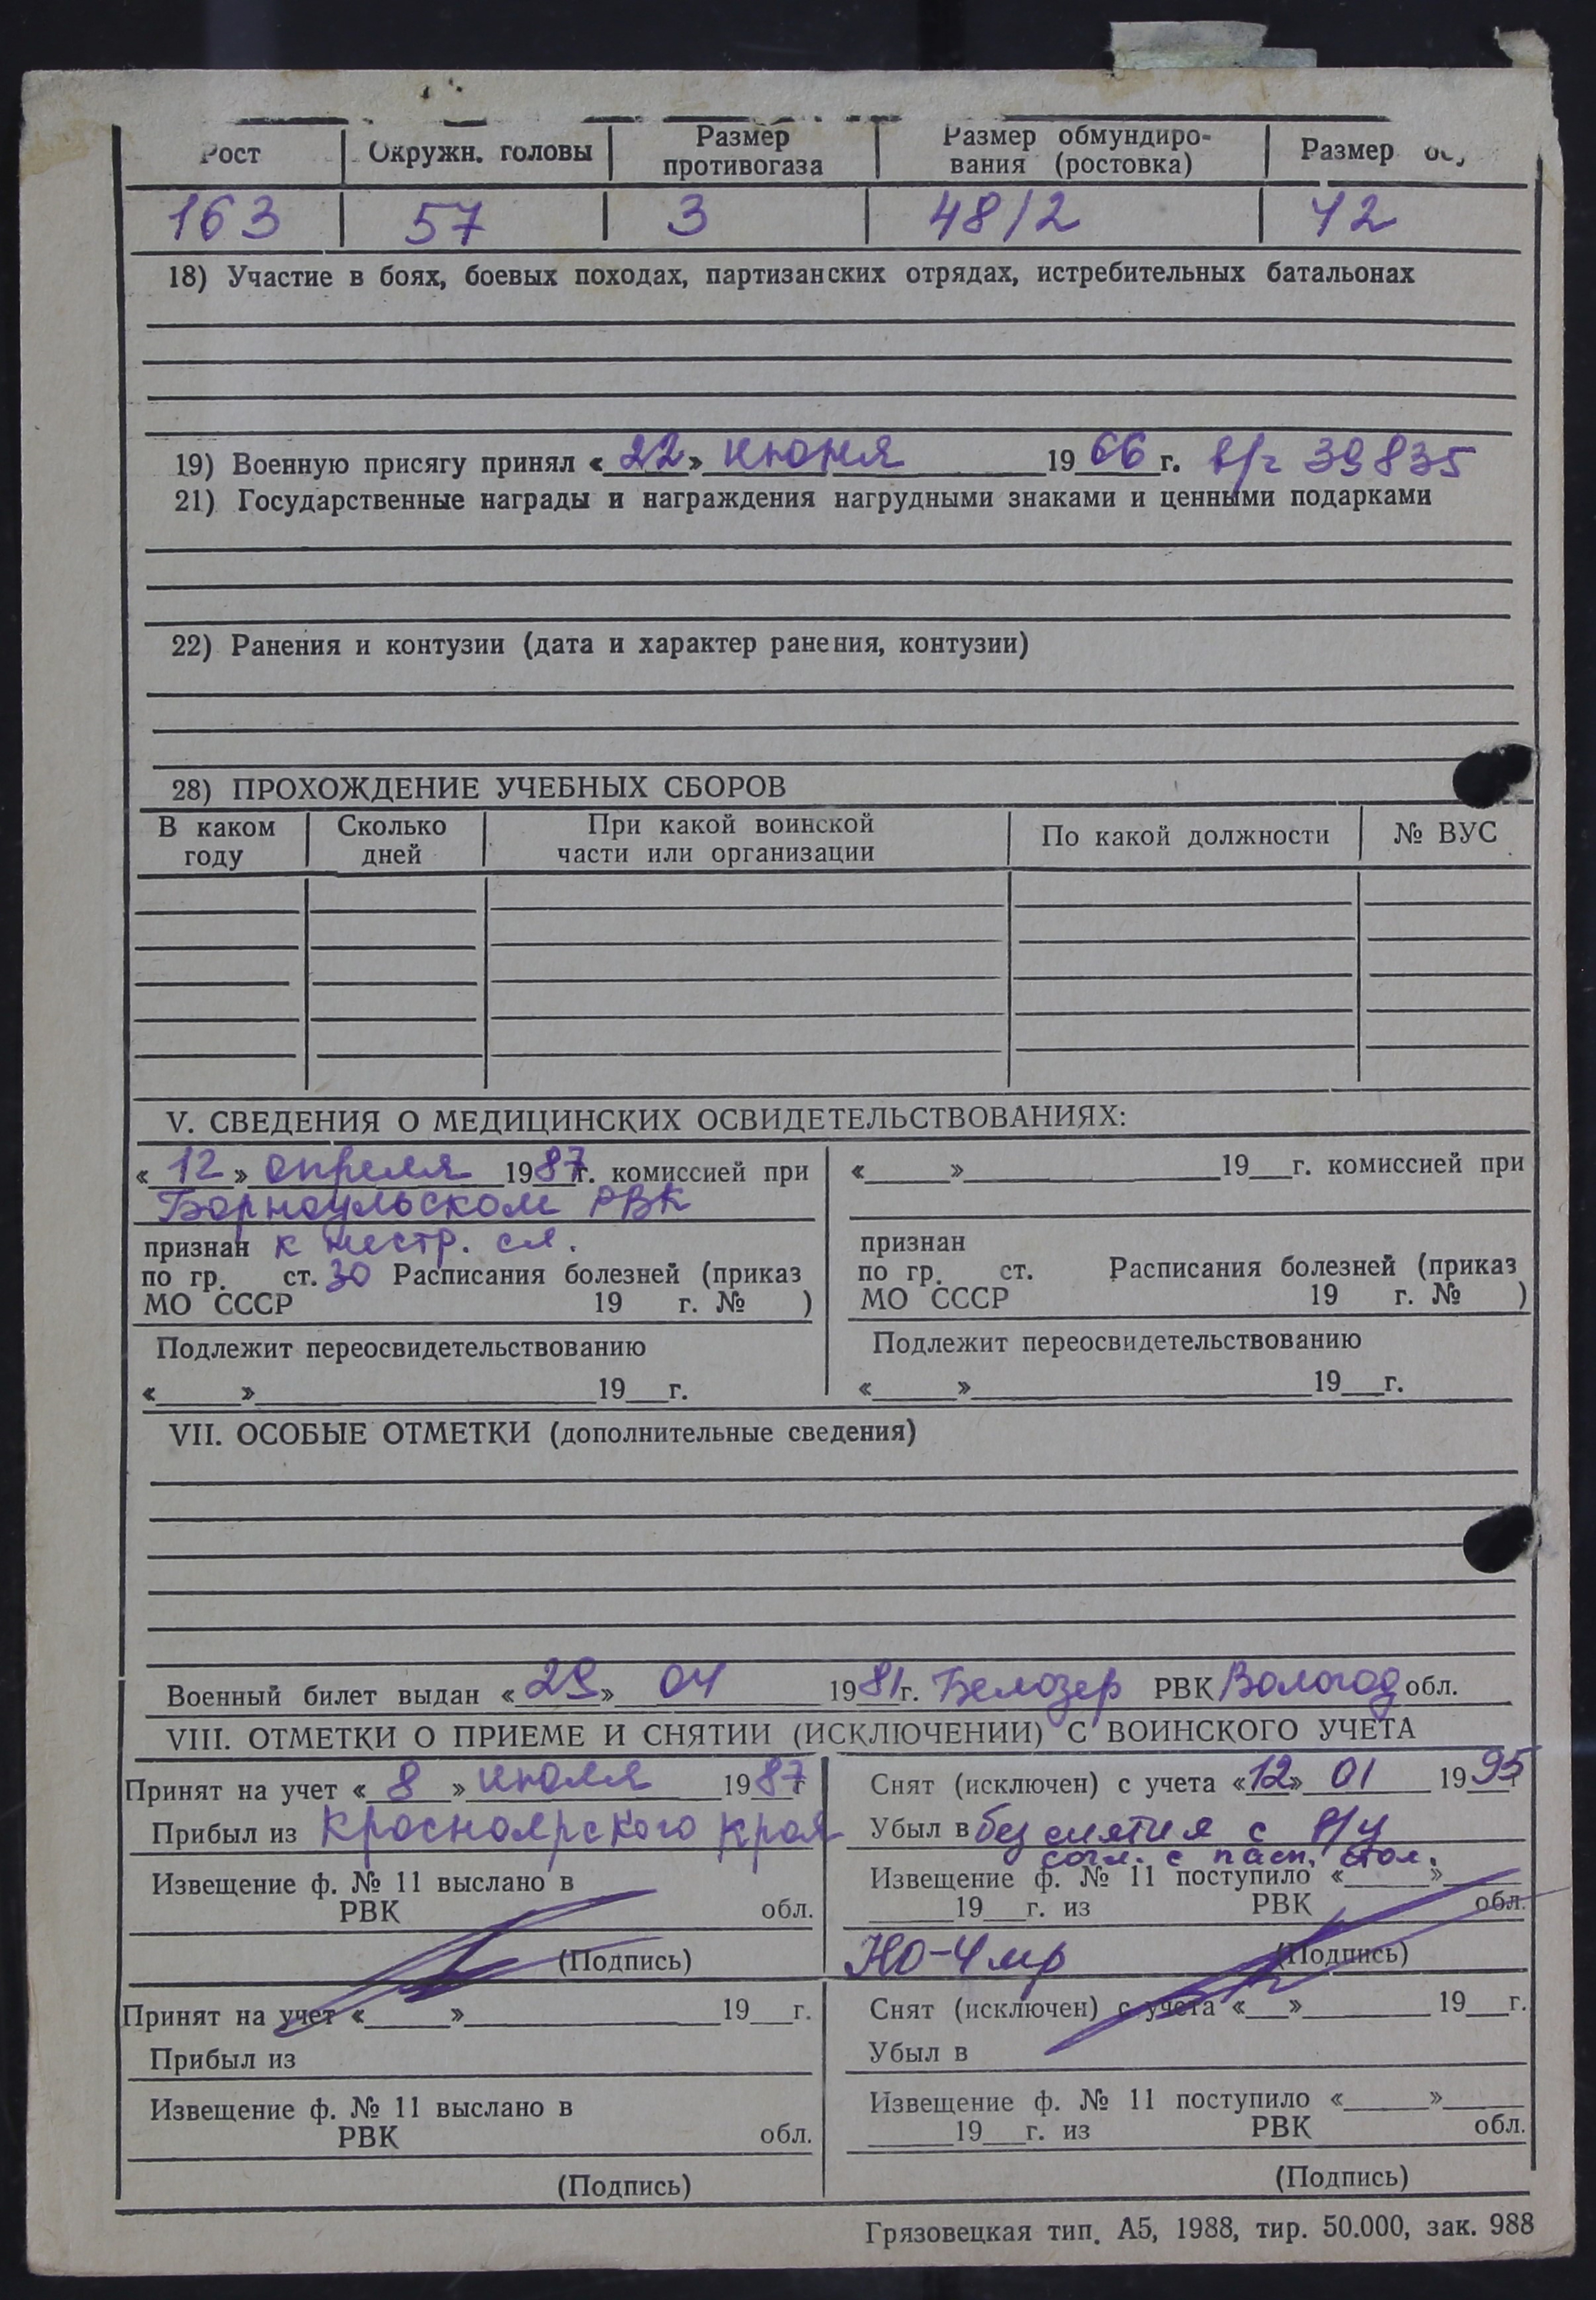 Рост Окружн. головы Размер противогаза Размер обмундиро-вания (ростовка) Размер
163 57 3 48/2 42
18) Участие в боях, боевых походах, партизанских отрядах, истребительных батальонах
19) Военную присягу принял « 22 » июня 1966 г. в/ч 39835
21) Государственные награды и награждения нагрудными знаками и ценными подарками
22) Ранения и контузии (дата и характер ранения, контузии)
28) ПРОХОЖДЕНИЕ УЧЕБНЫХ СБОРОВ
В каком году Сколько дней При какой воинской части или организации По какой должности № ВУС
V. СВЕДЕНИЯ О МЕДИЦИНСКИХ ОСВИДЕТЕЛЬСТВОВАНИЯХ:
« 12 » апреля 1987г. комиссией при
Барнаульском РВК
признан к нестр. сл.
по гр. ст. 30 Расписания болезней (приказ
МО СССР 19 г. № )
Подлежит переосвидетельствованию
« » 19 г.
« » 19 г. комиссией при
признан
по гр. ст. Расписания болезней (приказ
МО СССР 19 г. № )
Подлежит переосвидетельствованию
« » 19 г.
VII. ОСОБЫЕ ОТМЕТКИ (дополнительные сведения)
Военный билет выдан « 29 » 04 1981г. Белозер РВК Вологод обл.
VIII. ОТМЕТКИ О ПРИЕМЕ И СНЯТИИ (ИСКЛЮЧЕНИИ) С ВОИНСКОГО УЧЕТА
Принят на учет « 8 » июля 1987г
Прибыл из Красноярского края
Извещение ф. № 11 выслано в
РВК обл.
(Подпись)
Снят (исключен) с учета «12» 01 1995г
Убыл в без снятия с в/у
согл. с пасп. стол.
Извещение ф. № 11 поступило « »
19 г. из РВК обл.
НО-4 (Подпись)
Принят на учет « » 19 г.
Прибыл из
Извещение ф. № 11 выслано в
РВК обл.
(Подпись)
Снят (исключен) с учета « » 19 г.
Убыл в
Извещение ф. № 11 поступило « »
19 г. из РВК обл.
(Подпись)
Грязовецкая тип. А5, 1988, тир. 50.000, зак. 988